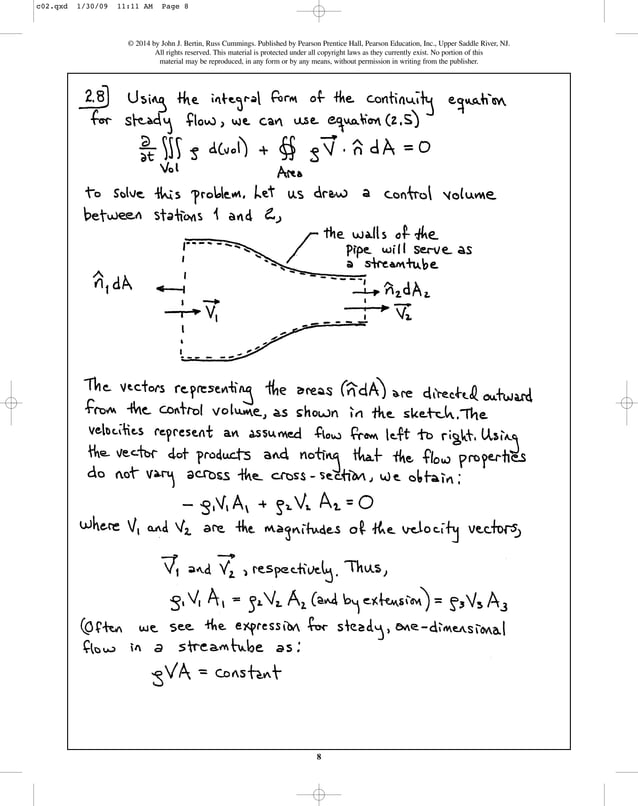 c02.qxd 1/30/09 11:11 AM Page 8
© 2014 by John J. Bertin, Russ Cummings. Published by Pearson Prentice Hall, Pearson Education, Inc., Upper Saddle River, NJ.
All rights reserved. This material is protected under all copyright laws as they currently exist. No portion of this
material may be reproduced, in any form or by any means, without permission in writing from the publisher.
2.8] Using the integral form of the continuity equation
for steady flow, we can use equation (2.5)
∂/∂t ∭ ρ d(vol) + ∯ ρ V⃗ · n̂ dA = 0
Vol Area
to solve this problem. Let us draw a control volume
between stations 1 and 2,
the walls of the
pipe will serve as
a streamtube
n̂₁dA n̂₂dA₂
V⃗₁ V⃗₂
The vectors representing the areas (n̂dA) are directed outward
from the control volume, as shown in the sketch. The
velocities represent an assumed flow from left to right. Using
the vector dot products and noting that the flow properties
do not vary across the cross-section, we obtain:
− ρ₁V₁A₁ + ρ₂V₂ A₂ = 0
where V₁ and V₂ are the magnitudes of the velocity vectors,
V⃗₁ and V⃗₂, respectively. Thus,
ρ₁V₁ A₁ = ρ₂V₂ A₂ (and by extension) = ρ₃V₃ A₃
(Often we see the expression for steady, one-dimensional
flow in a streamtube as:
ρVA = constant
8